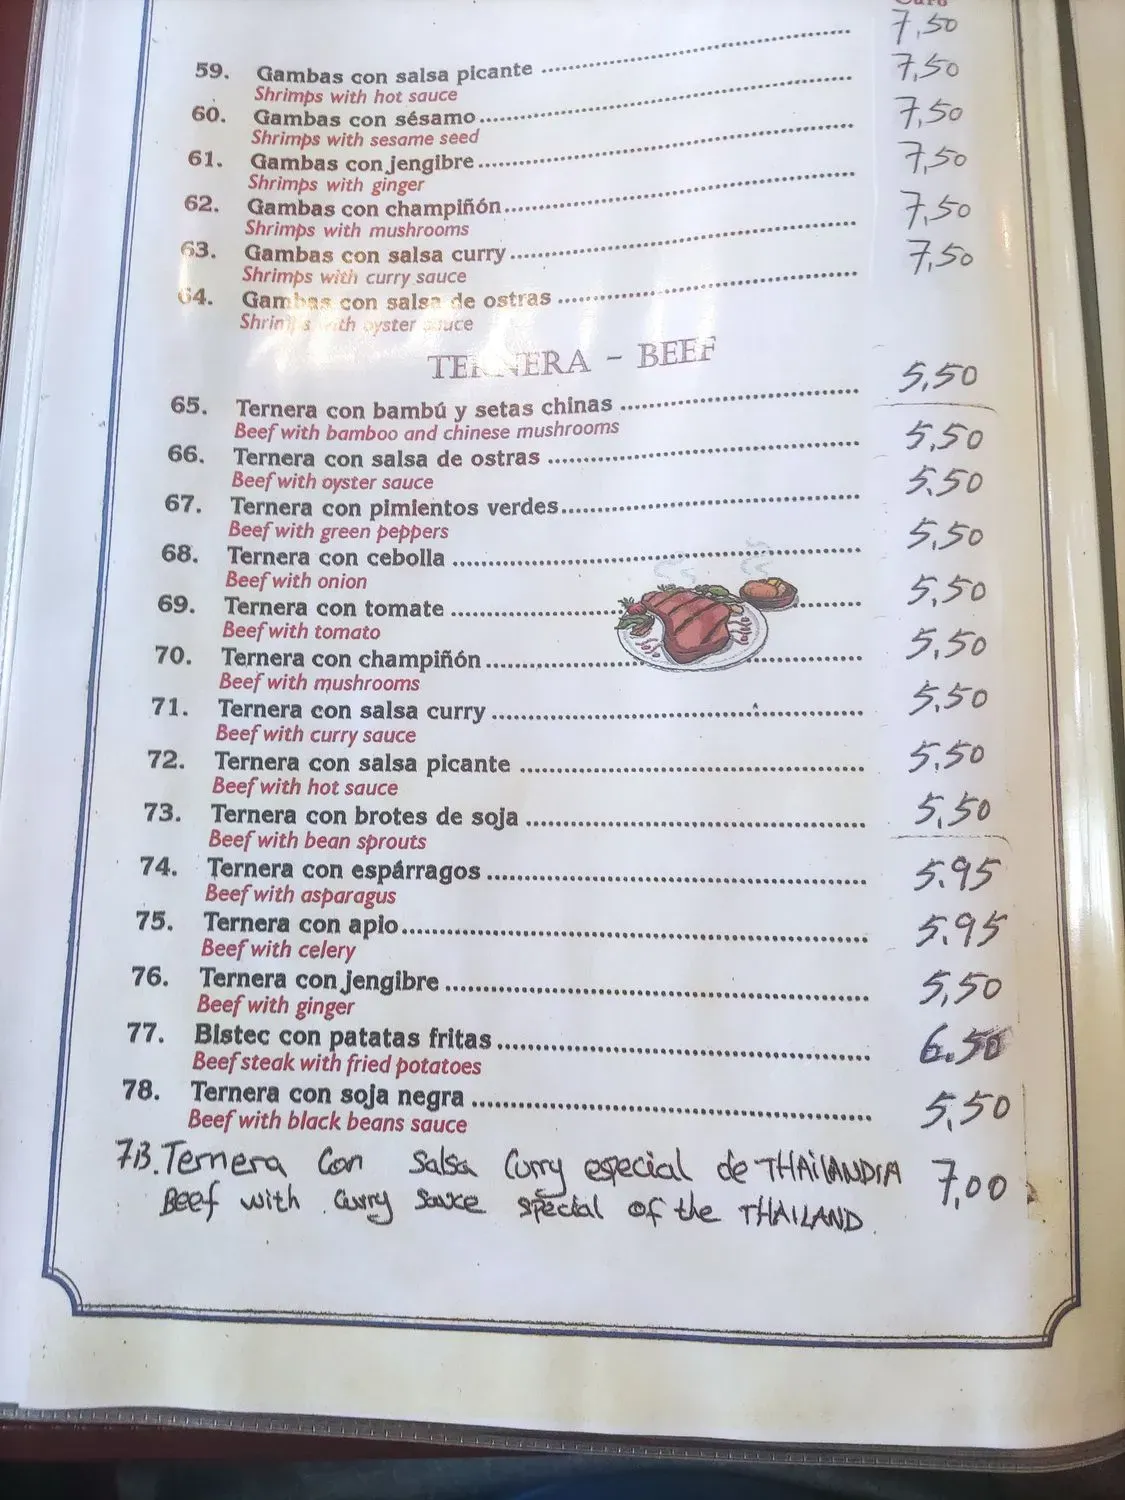 7,50
59. Gambas con salsa picante 7,50
Shrimps with hot sauce
60. Gambas con sésamo 7,50
Shrimps with sesame seed
61. Gambas con jengibre 7,50
Shrimps with ginger
62. Gambas con champiñón 7,50
Shrimps with mushrooms
63. Gambas con salsa curry 7,50
Shrimps with curry sauce
64. Gambas con salsa de ostras
Shrimps with oyster sauce
TERNERA - BEEF
65. Ternera con bambú y setas chinas 5,50
Beef with bamboo and chinese mushrooms
66. Ternera con salsa de ostras 5,50
Beef with oyster sauce
67. Ternera con pimientos verdes 5,50
Beef with green peppers
68. Ternera con cebolla 5,50
Beef with onion
69. Ternera con tomate 5,50
Beef with tomato
70. Ternera con champiñón 5,50
Beef with mushrooms
71. Ternera con salsa curry 5,50
Beef with curry sauce
72. Ternera con salsa picante 5,50
Beef with hot sauce
73. Ternera con brotes de soja 5,50
Beef with bean sprouts
74. Ternera con espárragos 5.95
Beef with asparagus
75. Ternera con apio 5.95
Beef with celery
76. Ternera con jengibre 5,50
Beef with ginger
77. Bistec con patatas fritas 6.50
Beef steak with fried potatoes
78. Ternera con soja negra 5,50
Beef with black beans sauce
7B. Ternera Con Salsa Curry especial de THAILANDIA 7,00
Beef with Curry Sauce special of the THAILAND